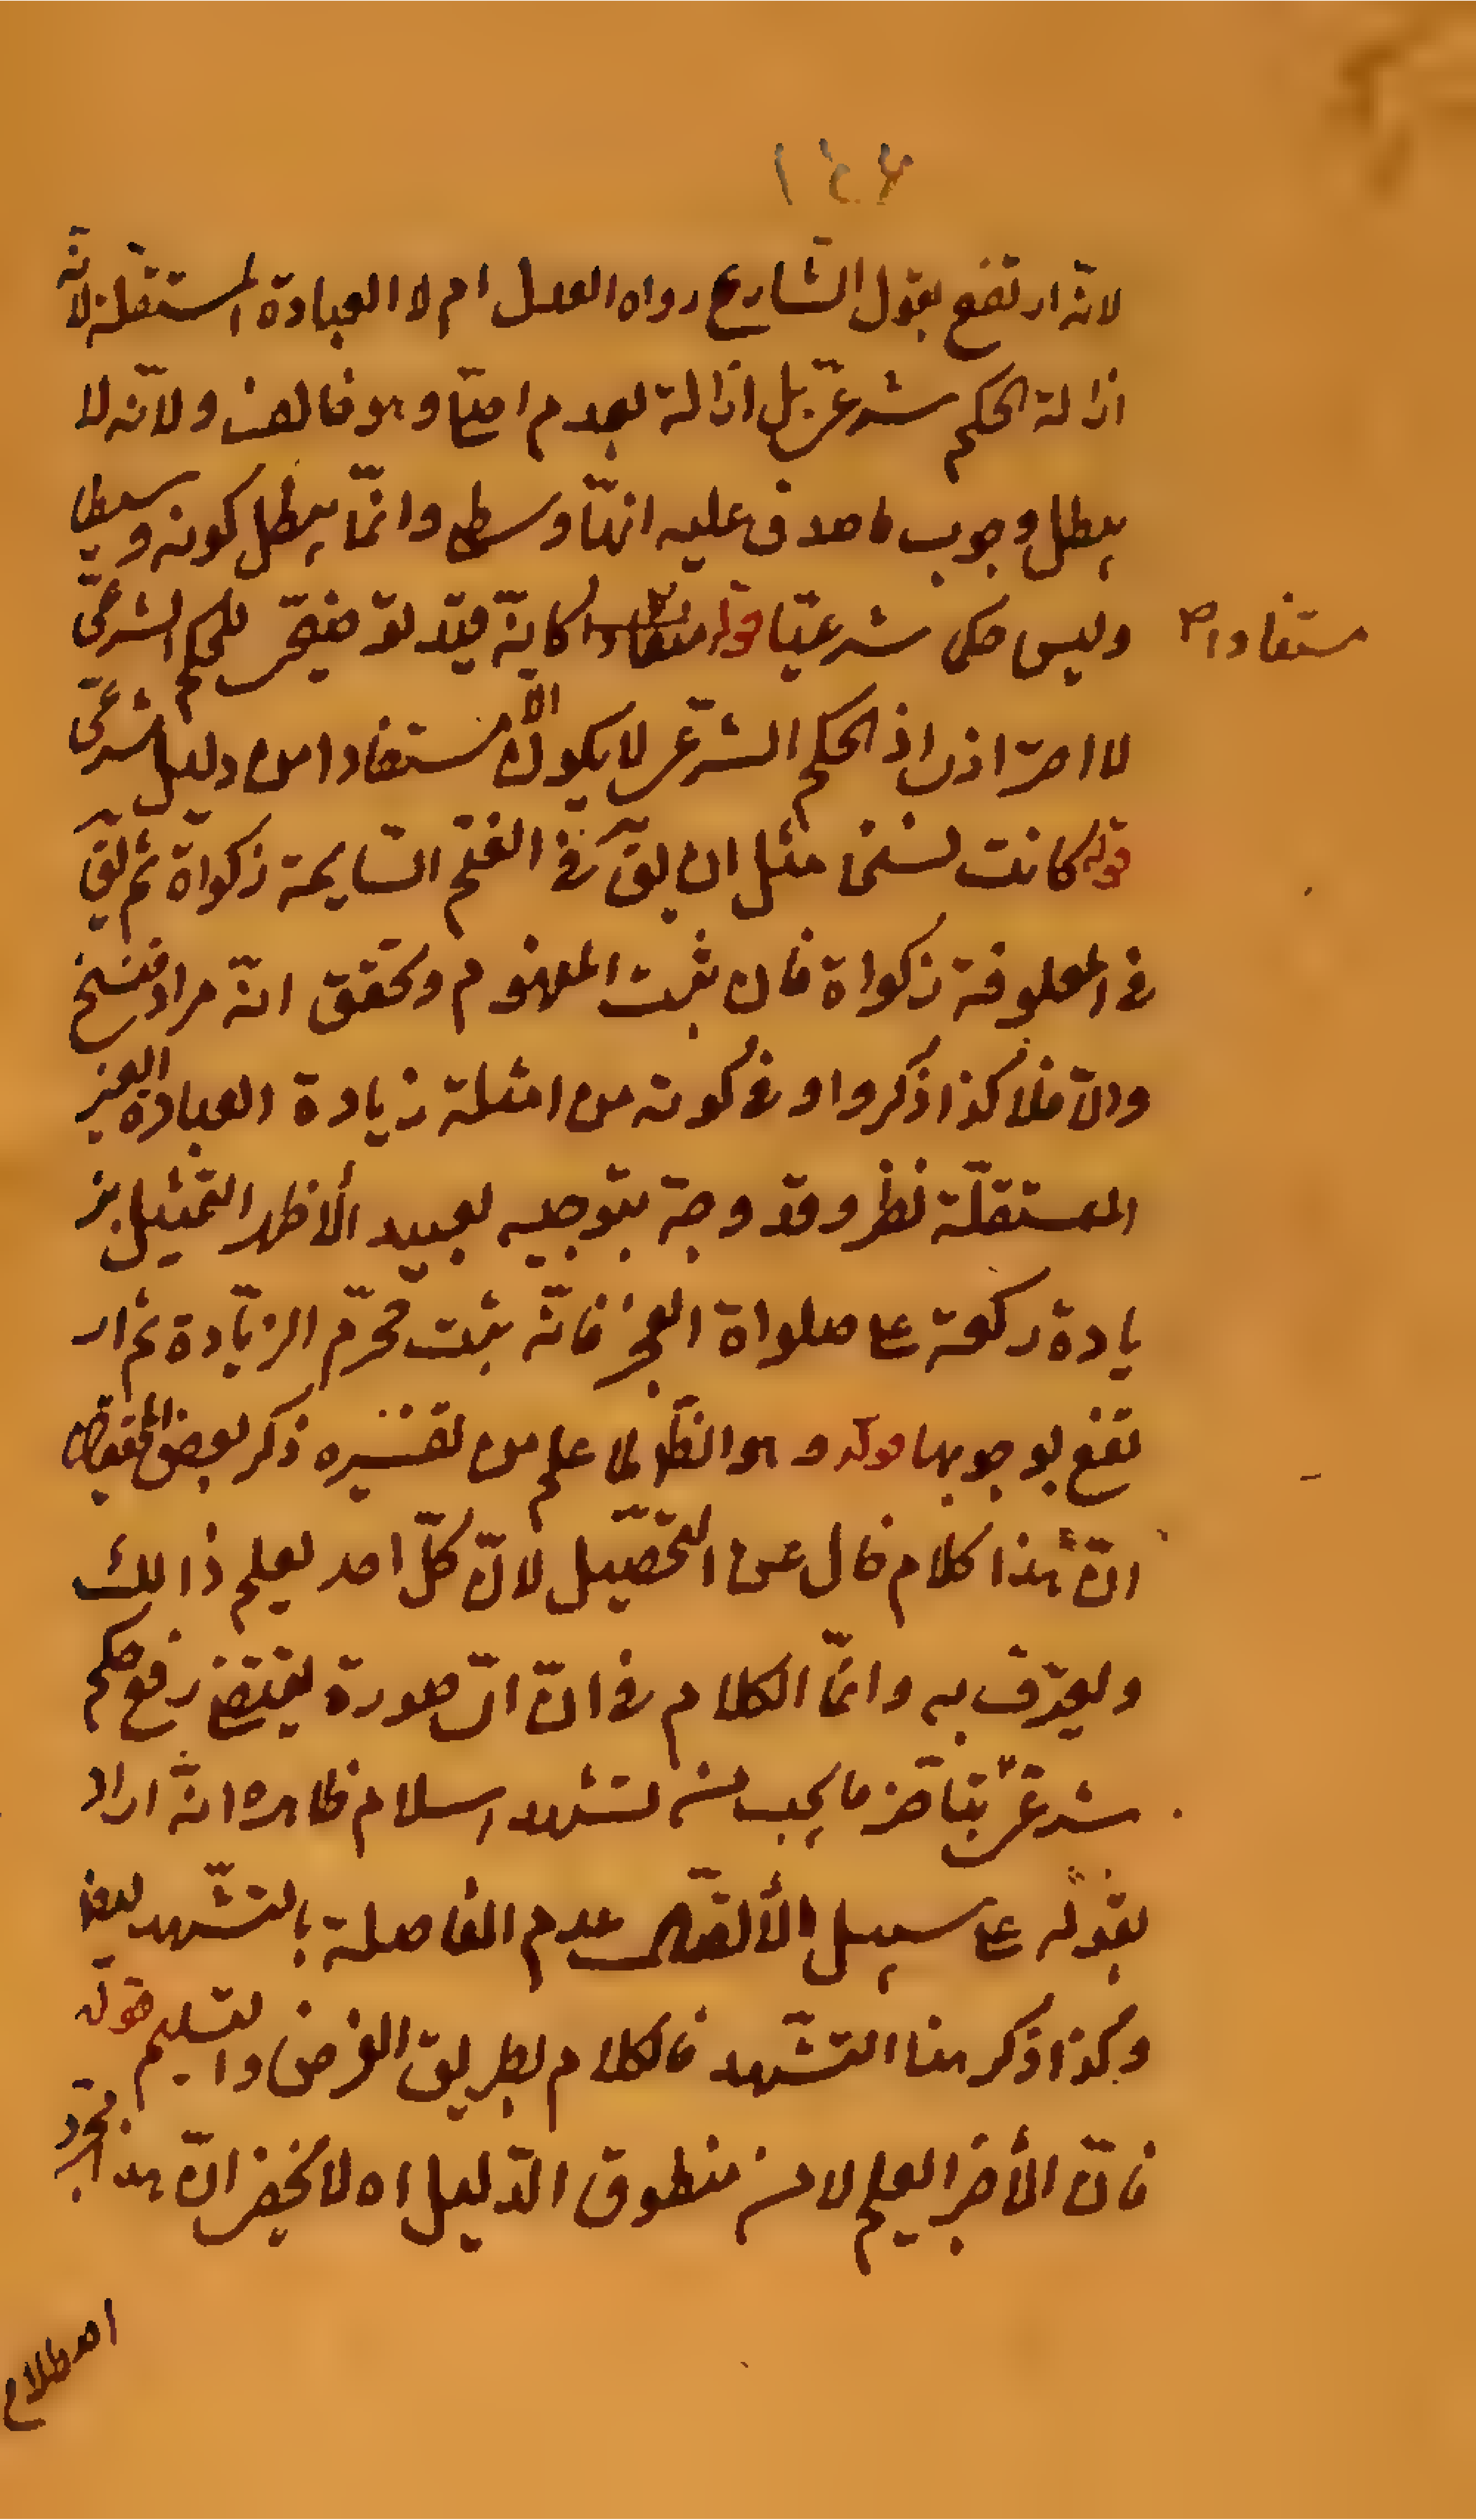 ١٤٦
لانه ارتفع بقول الشارع رواه العدل ام لا العبادة المستقلة لانه
ازالة الحكم شرعىّ بل ازالة لعدم امتثا وهو خالص ولانه لا
يبطل وجوب ما صدق عليه انها وسطى وانما يبطل كونه وسطى
وليس حكما شرعيّا قوله كانه قيد توضيحى للحكم الشرعىّ
مستفادا صح
لا احترازى اذ الحكم الشرعى لا يكون الّا مستفادا من دليل شرعىّ
قوله كانت نسخا مثل ان يقَ فى الغنم السايمة زكواة ثم يقَ
فى المعلوفة زكواة فان ثبت المفهوم وتحقق انه مراد فنسخ
والّا فلا كذا ذكروا وفى كونه من امثلة زيادة العبادة الغير
المستقلّة نظر وقد وجّه بتوجيه بعيد الاظهر التمثيل بز
يادة ركعة على صلواة الفجر فانّه ثبت تحرّم الزيّادة ثم ار
تفع بوجوبها قوله وهو انظر لما علم من تفسيره ذكر بعض المحققين
انّ هذا كلام خال عن التحصيل لانّ كلّ احد يعلم ذالك
ويعرف به وانما الكلام فى انّ اىّ صورة يقتضى رفع حكم
شرعىّ بتاخر ما يجب من تشهد وسلام ظاهره انه اراد
بقوله على سبيل الاتصال عدم الفاصلة بالتشهد ايضا
وكذا ذكر هنا التشهد فالكلام بطريق الفرض والتسليم قوله
فانّ الأجزا يعلم لا من منطوق الدّليل اه لا يخفى انّ هذا مجرد
اصطلاح